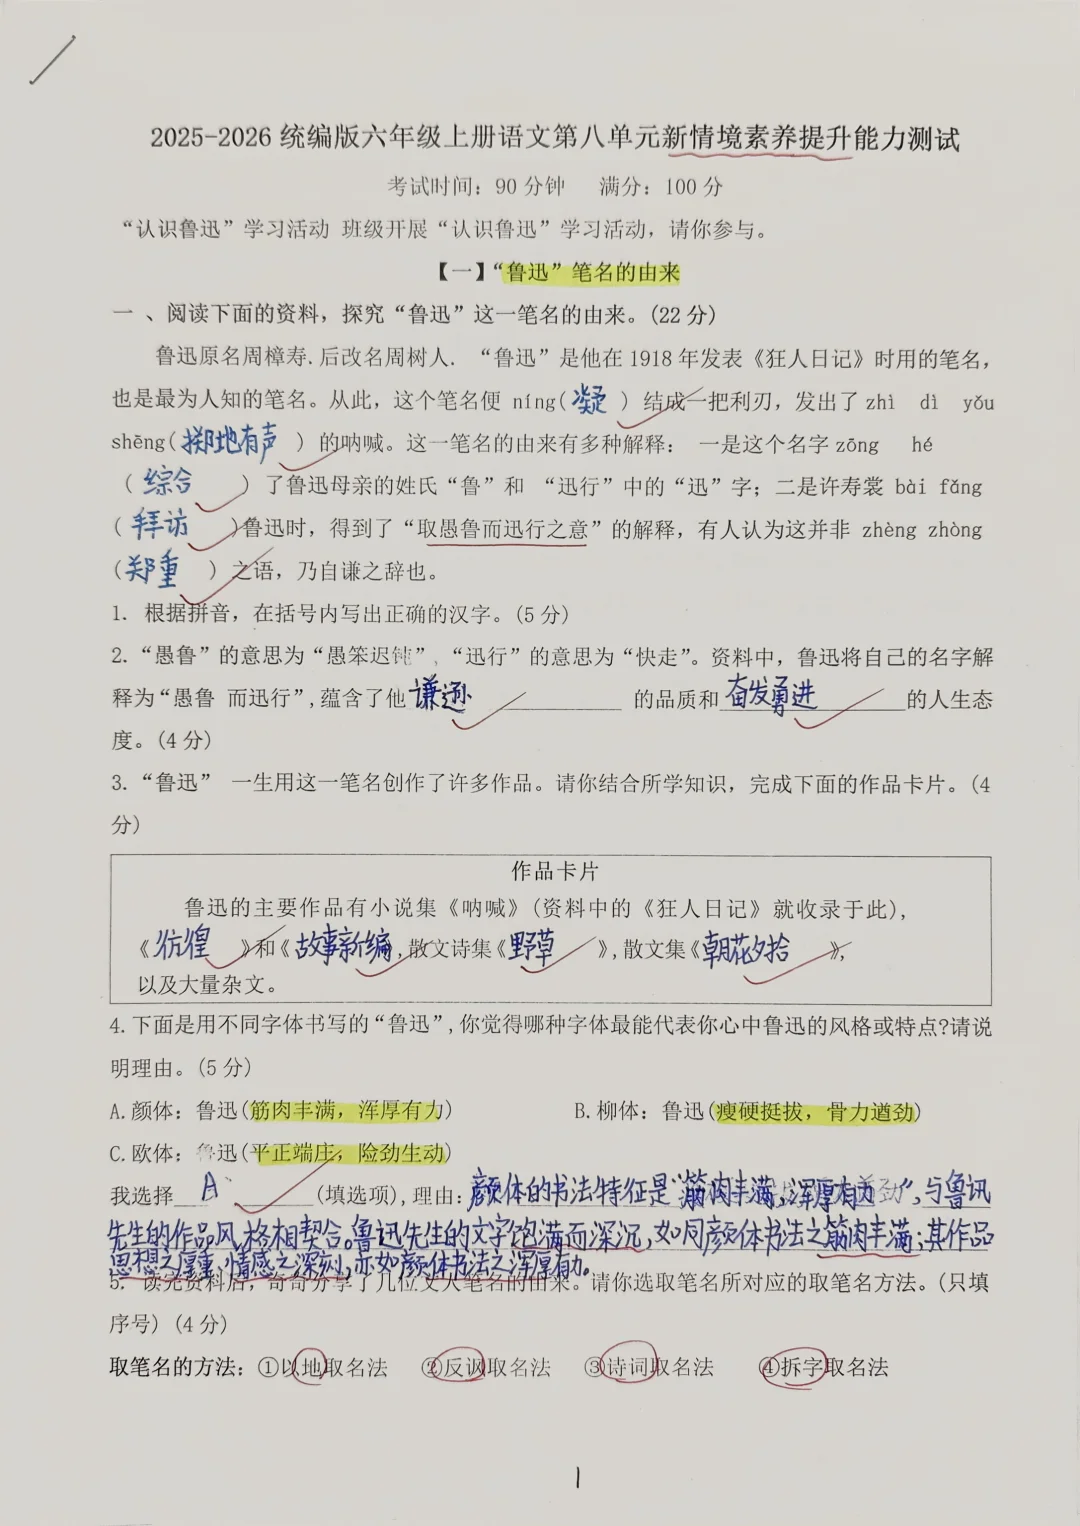 2025-2026 统编版六年级上册语文第八单元新情境素养提升能力测试
考试时间：90 分钟 满分：100 分
“认识鲁迅”学习活动 班级开展“认识鲁迅”学习活动，请你参与。
【一】“鲁迅”笔名的由来
一 、阅读下面的资料，探究“鲁迅”这一笔名的由来。(22 分)
鲁迅原名周樟寿.后改名周树人. “鲁迅”是他在 1918 年发表《狂人日记》时用的笔名，
也是最为人知的笔名。从此，这个笔名便 níng(凝 ) 结成一把利刃，发出了 zhì dì yǒu
shēng(掷地有声 ) 的呐喊。这一笔名的由来有多种解释： 一是这个名字 zōng hé
( 综合 ) 了鲁迅母亲的姓氏“鲁”和 “迅行”中的“迅”字；二是许寿裳 bài fǎng
( 拜访 )鲁迅时，得到了“取愚鲁而迅行之意”的解释，有人认为这并非 zhèng zhòng
(郑重 ) 之语，乃自谦之辞也。
1. 根据拼音，在括号内写出正确的汉字。(5 分)
2. “愚鲁”的意思为“愚笨迟钝”，“迅行”的意思为“快走”。资料中，鲁迅将自己的名字解
释为“愚鲁 而迅行”,蕴含了他 谦逊 的品质和 奋发勇进 的人生态
度。(4 分)
3. “鲁迅” 一生用这一笔名创作了许多作品。请你结合所学知识，完成下面的作品卡片。(4
分)
作品卡片
鲁迅的主要作品有小说集《呐喊》(资料中的《狂人日记》就收录于此),
《彷徨 》和《故事新编,散文诗集《野草 》,散文集《朝花夕拾 》,
以及大量杂文。
4. 下面是用不同字体书写的“鲁迅”,你觉得哪种字体最能代表你心中鲁迅的风格或特点?请说
明理由。(5 分)
A. 颜体：鲁迅(筋肉丰满，浑厚有力) B. 柳体：鲁迅(瘦硬挺拔，骨力遒劲)
C. 欧体：鲁迅(平正端庄，险劲生动)
我选择 A (填选项),理由:颜体的书法特征是“筋肉丰满,浑厚有力”,与鲁讯
先生的作品风格相契合。鲁迅先生的文字饱满而深沉,如同颜体书法之筋肉丰满;其作品
思想之厚重,情感之深刻,亦如颜体书法之浑厚有力。
5. 读完资料后，奇奇分享了几位文人笔名的由来。请你选取笔名所对应的取笔名方法。(只填
序号) (4 分)
取笔名的方法：①以地取名法 ②反讽取名法 ③诗词取名法 ④拆字取名法
1